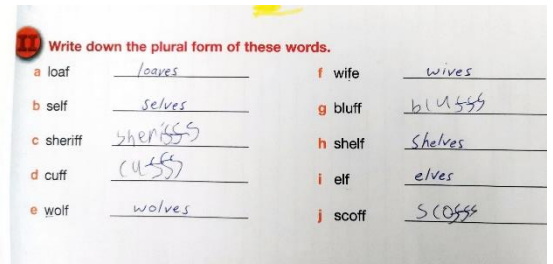 II Write down the plural form of these words.
a loaf loaves
b self selves
c sheriff sheriffs
d cuff cuffs
e wolf wolves
f wife wives
g bluff bluffs
h shelf shelves
i elf elves
j scoff scoffs